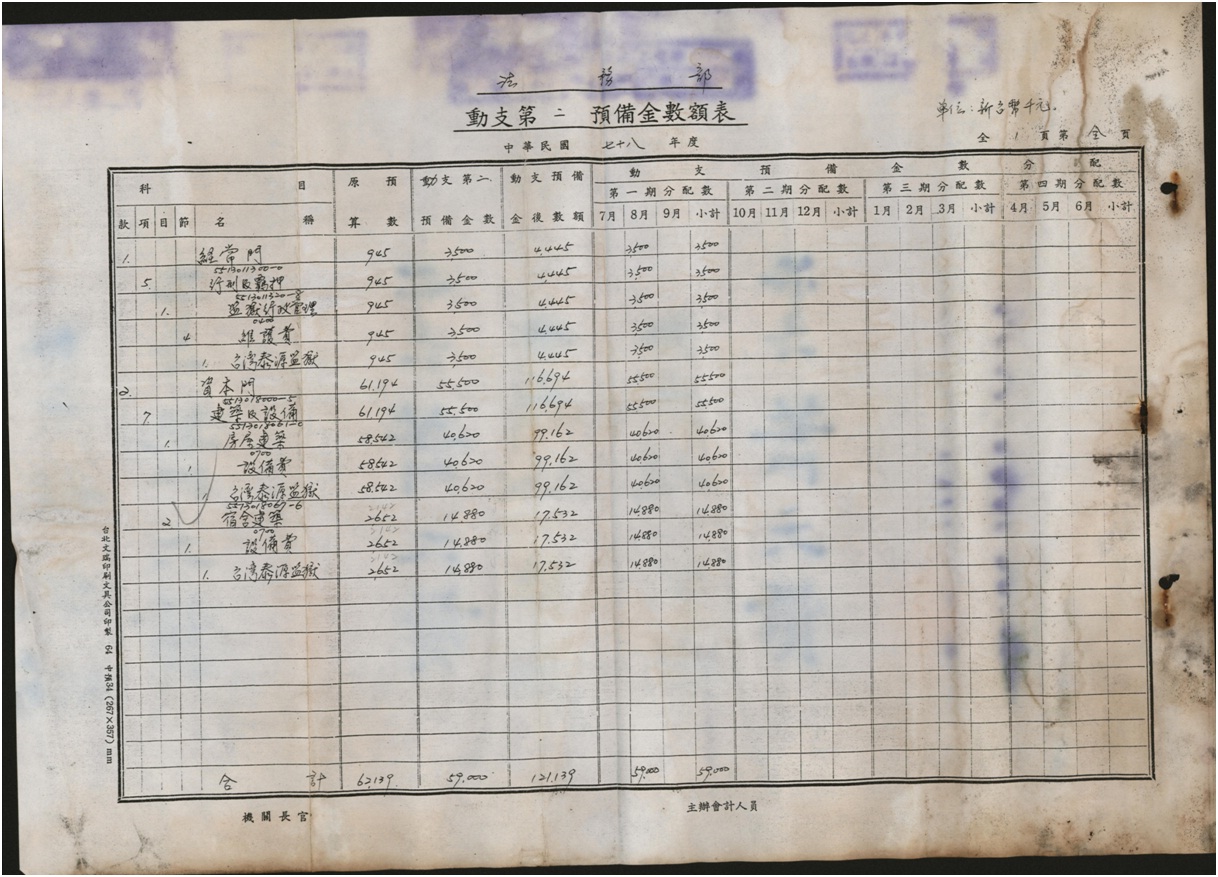 法務部
動支第二預備金數額表
單位：新台幣千元.
中華民國 七十八 年度
全 1 頁第 全 頁
科目 原預算數 動支第二預備金數 動支預備金後數額 動支預備金數分配
第一期分配數 第二期分配數 第三期分配數 第四期分配數
款 項 目 節 名稱 7月 8月 9月 小計 10月 11月 12月 小計 1月 2月 3月 小計 4月 5月 6月 小計
1. 經常門 945 3,500 4,445 3,500 3,500
5513011300-0
5. 行刑及羈押 945 3,500 4,445 3,500 3,500
1. 監獄行政管理 945 3,500 4,445 3,500 3,500
0400
4 維護費 945 3,500 4,445 3,500 3,500
1. 台灣泰源監獄 945 3,500 4,445 3,500 3,500
2. 資本門 61,194 55,500 116,694 55,500 55,500
5513018000-5
7. 建築及設備 61,194 55,500 116,694 55,500 55,500
5513018061-0
1. 房屋建築 58,542 40,620 99,162 40,620 40,620
0700
1. 設備費 58,542 40,620 99,162 40,620 40,620
1. 台灣泰源監獄 58,542 40,620 99,162 40,620 40,620
5513018067-6
2. 宿舍建築 2,652 14,880 17,532 14,880 14,880
0700
1. 設備費 2,652 14,880 17,532 14,880 14,880
1. 台灣泰源監獄 2,652 14,880 17,532 14,880 14,880
合計 62,139 59,000 121,139 59,000 59,000
機關長官
主辦會計人員
台北文瑞印刷文具公司印製 64 中預34 (267×357) mm